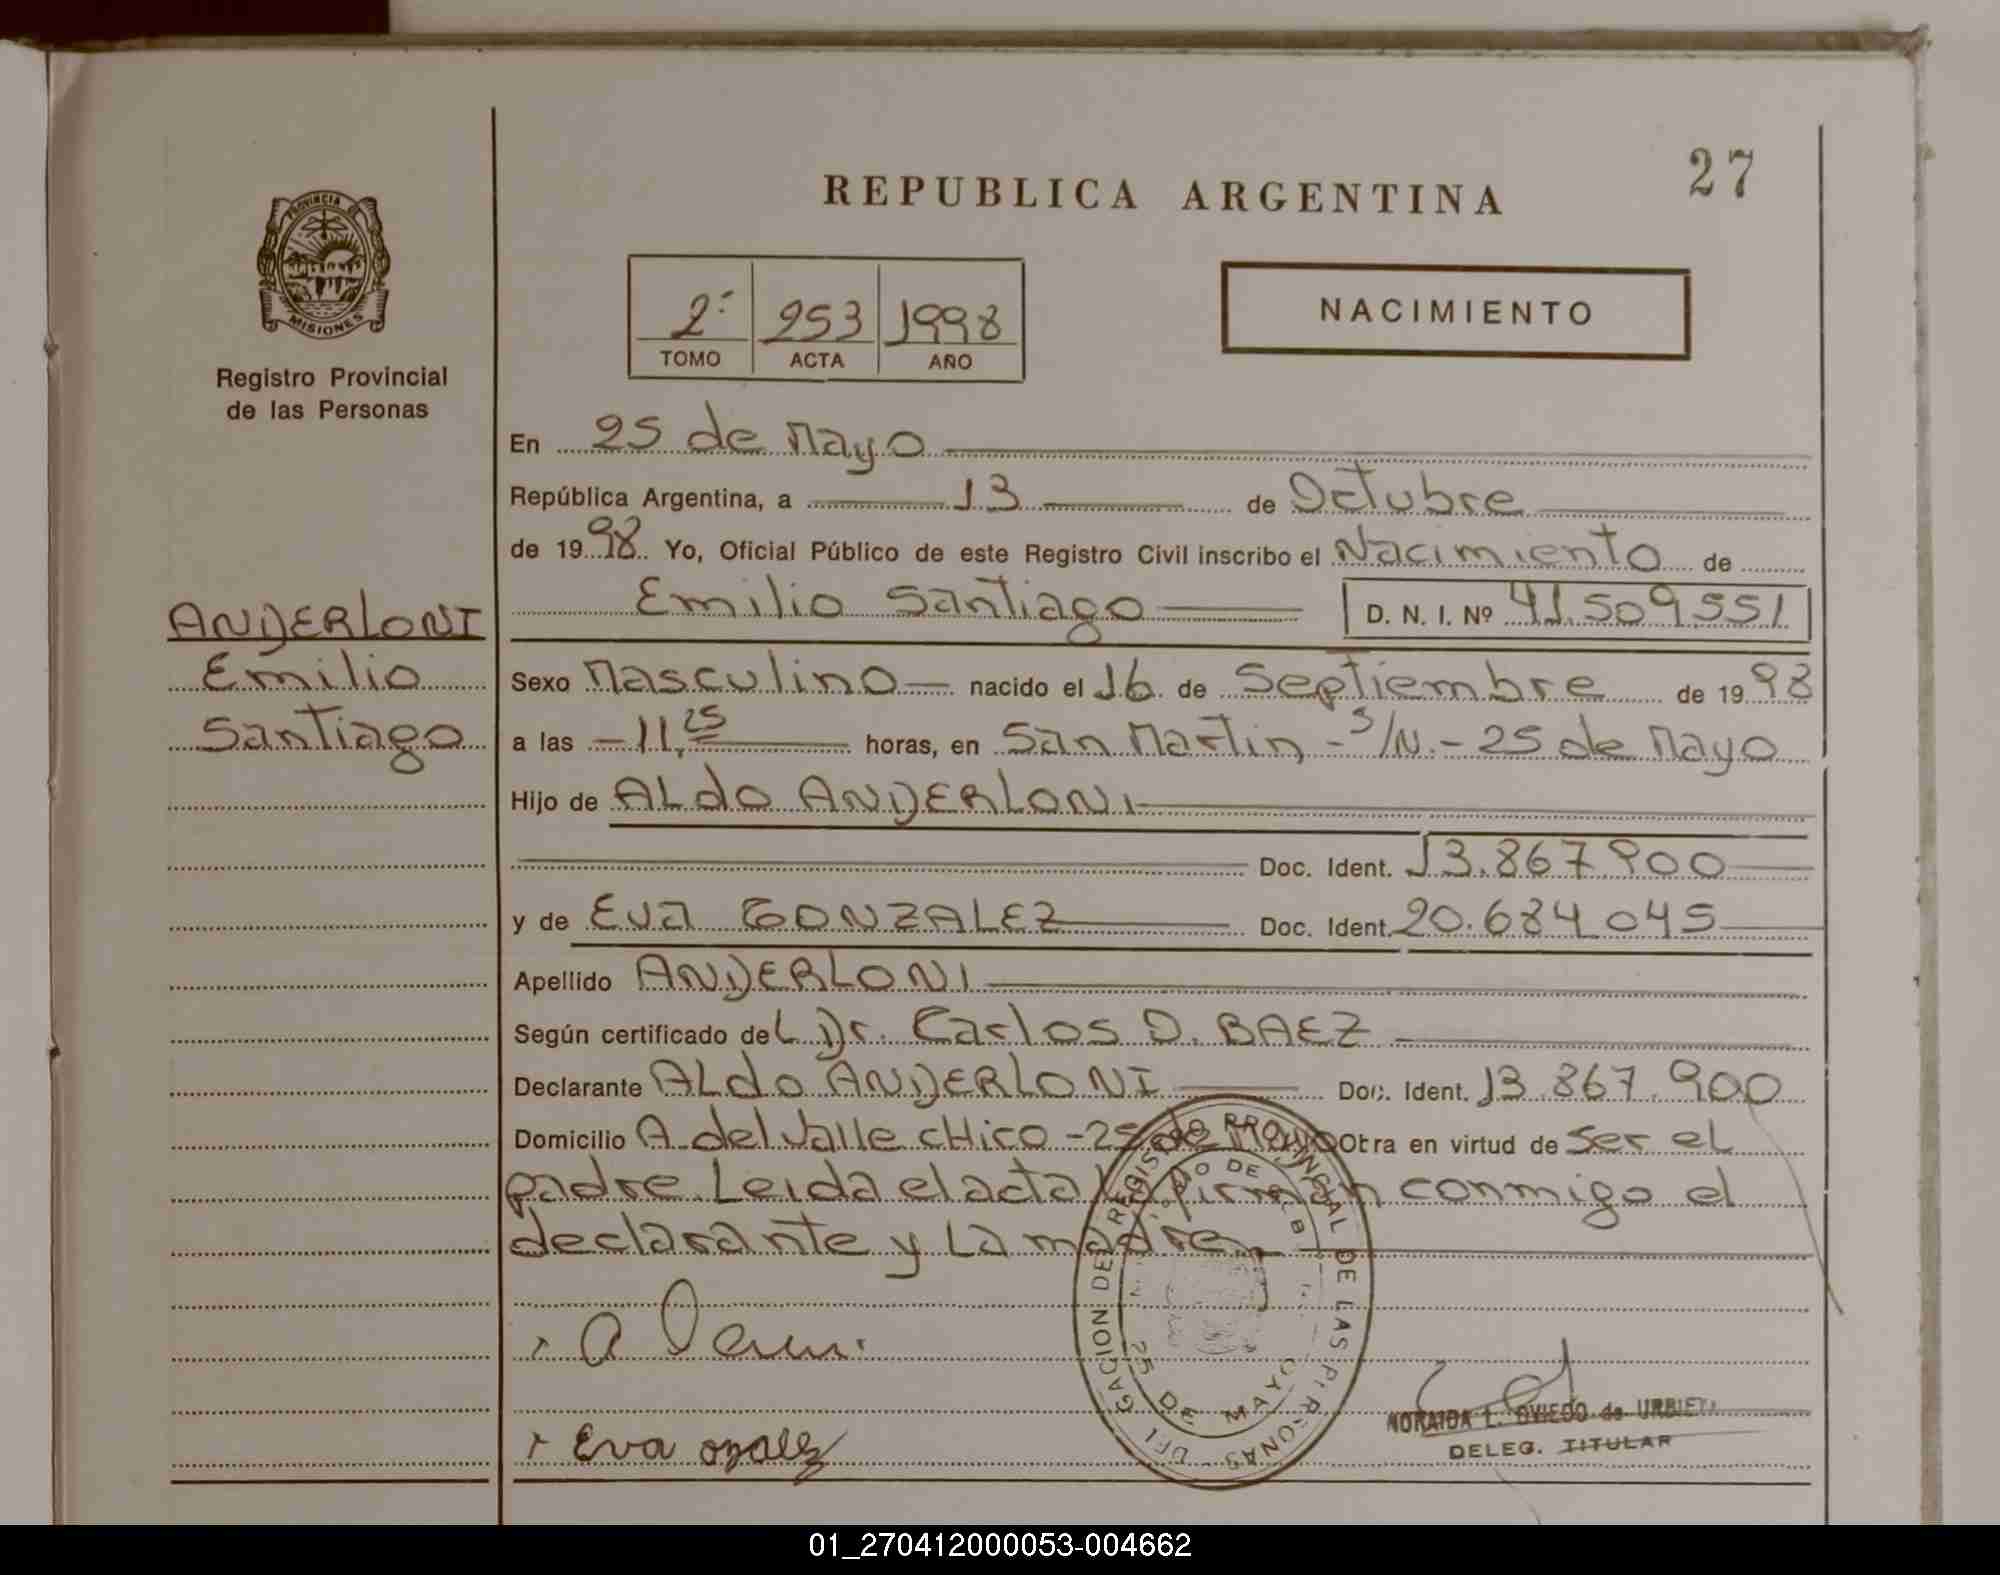 27
REPUBLICA ARGENTINA
PROVINCIA DE
MISIONES
Registro Provincial
de las Personas
2º 253 1998
TOMO ACTA AÑO
NACIMIENTO
En 25 de Mayo
República Argentina, a 13 de Octubre
de 1998 Yo, Oficial Público de este Registro Civil inscribo el Nacimiento de
Emilio Santiago D. N. I. Nº 41.509.551
ANDERLONI
Emilio
Santiago
Sexo Masculino nacido el 16 de Septiembre de 1998
a las -11,25 horas, en San Martin, - S/N. - 25 de Mayo
Hijo de ALdo ANDERLONI
Doc. Ident. 13.867.900
y de Eva GONZALEZ Doc. Ident. 20.684.045
Apellido ANDERLONI
Según certificado deL Dr. Carlos D. BAEZ
Declarante ALdo ANDERLONI Doc. Ident. 13.867.900
Domicilio A. del Valle cHico - 25 de Mayo Obra en virtud de Ser el
padre. Leida el acta la firman conmigo el
declarante y La madre
Eva
REGISTRO PROVINCIAL DE LAS PERSONAS
25 DE MAYO
NORAIDA L. OVIEDO de URBIETA
DELEG. TITULAR
01_270412000053-004662